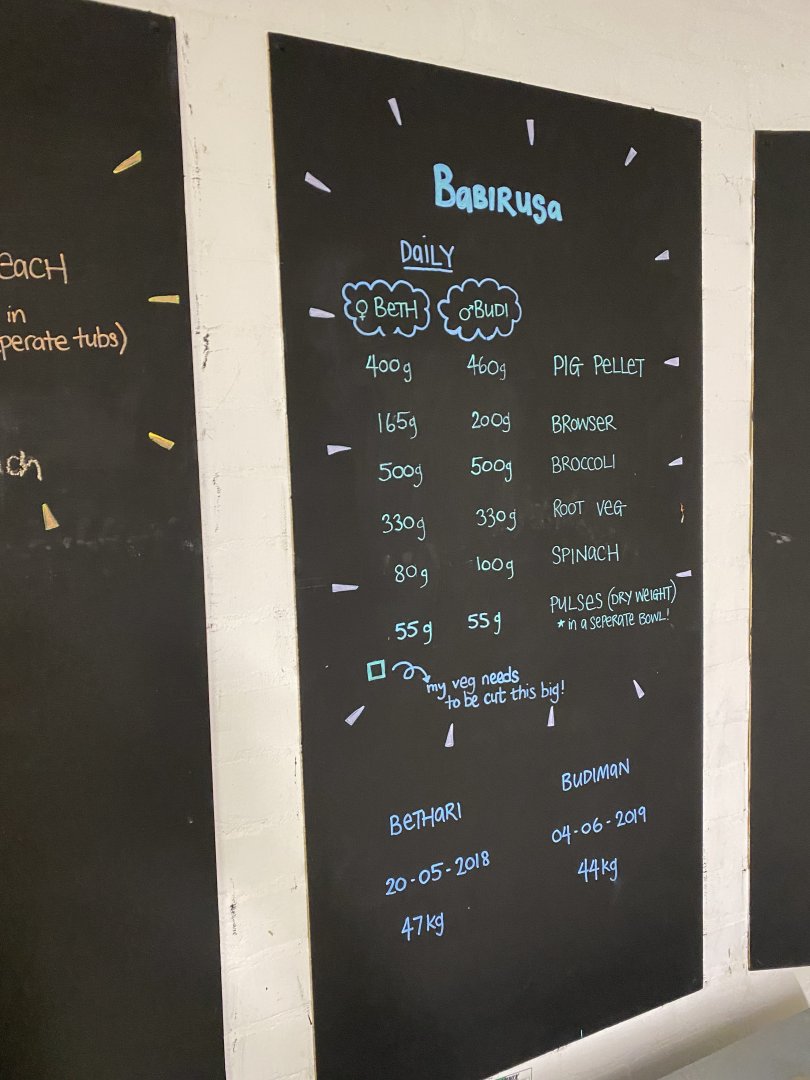 each
in
perate tubs)
ch
BaBIRUSa
DaiLY
♀ BeTH ♂ BUDI
400g 460g PIG PeLLeT
165g 200g BROWSER
500g 500g BROCCOLI
330g 330g ROOT VeG
80g 100g SPINACH
55g 55g PULSES (DRY WeIGHT)
* in a SePeRATE BOWL!
my veg needs
to be cut this big!
BeTHaRI BUDIMAN
20-05-2018 04-06-2019
47kg 44kg